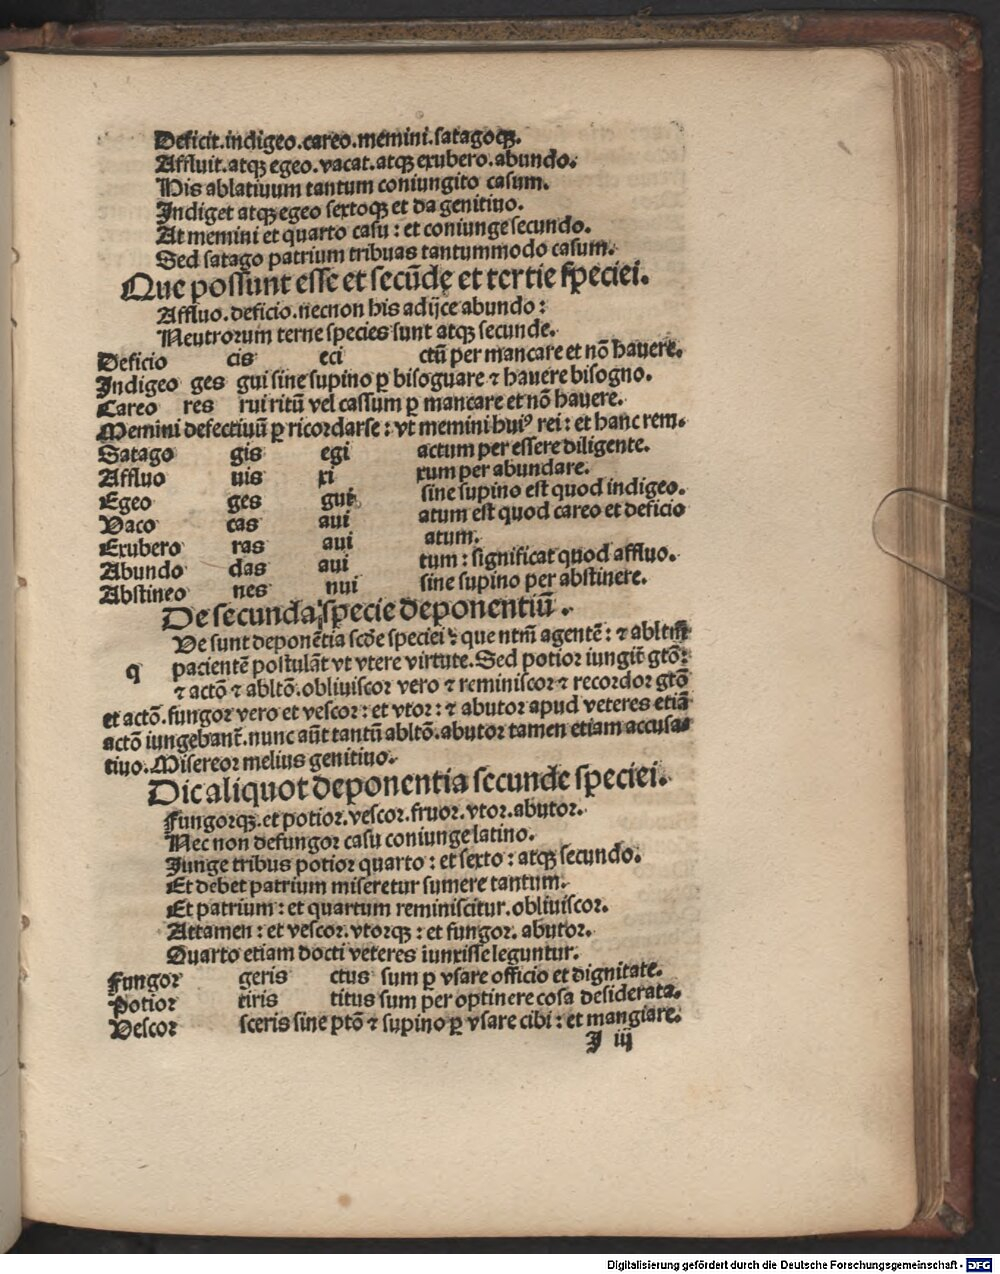 Deficit.indigeo.careo.memini.satagoqꝫ.
Affluit.atqꝫ egeo.vacat.atqꝫ exubero.abundo.
His ablatiuum tantum coniungito casum.
Indiget atqꝫ egeo sextoqꝫ et da genitiuo.
At memini et quarto casu : et coniunge secundo.
Sed satago patrium tribuas tantummodo casum.
Que possunt esse et secūdę et tertie speciei.
Affluo.deficio.necnon his adijce abundo :
Neutrorum terne species sunt atqꝫ secunde.
Deficio cis eci ctū per mancare et nō hauere.
Indigeo ges gui sine supino ꝑ bisoguare ⁊ hauere bisogno.
Careo res rui ritū vel cassum ꝑ mancare et nō hauere.
Memini defectiuū ꝑ ricordarse : vt memini huiꝰ rei : et hanc rem.
Satago gis egi actum per essere diligente.
Affluo uis xi xum per abundare.
Egeo ges gui sine supino est quod indigeo.
Vaco cas aui atum est quod careo et deficio
Exubero ras aui atum.
Abundo das aui tum : significat quod affluo.
Abstineo nes nui sine supino per abstinere.
De secunda specie deponentiū.
q Ve sunt deponētia scđe speciei : que ntm̄ agentē : ⁊ abltm̄
pacientē postulāt vt vtere virtute. Sed potior iungit̄ gtō :
⁊ actō ⁊ abltō.obliuiscor vero ⁊ reminiscor ⁊ recordor gtō
et actō.fungor vero et vescor : et vtor : ⁊ abutor apud veteres etiā
actō iungebant̄.nunc aūt tantū abltō.abutor tamen etiam accusa-
tiuo.Misereor melius genitiuo.
Dic aliquot deponentia secunde speciei.
Fungorqꝫ.et potior.vescor.fruor.vtor.abutor.
Nec non defungor casu coniunge latino.
Iunge tribus potior quarto : et sexto : atqꝫ secundo.
Et debet patrium miseretur sumere tantum.
Et patrium : et quartum reminiscitur.obliuiscor.
Attamen : et vescor.vtorqꝫ : et fungor.abutor.
Quarto etiam docti veteres iunxisse leguntur.
Fungor geris ctus sum ꝑ vsare officio et dignitate.
Potior tiris titus sum per optinere cosa desiderata.
Vescor sceris sine ptō ⁊ supino ꝑ vsare cibi : et mangiare.
I iij
Digitalisierung gefördert durch die Deutsche Forschungsgemeinschaft - DFG